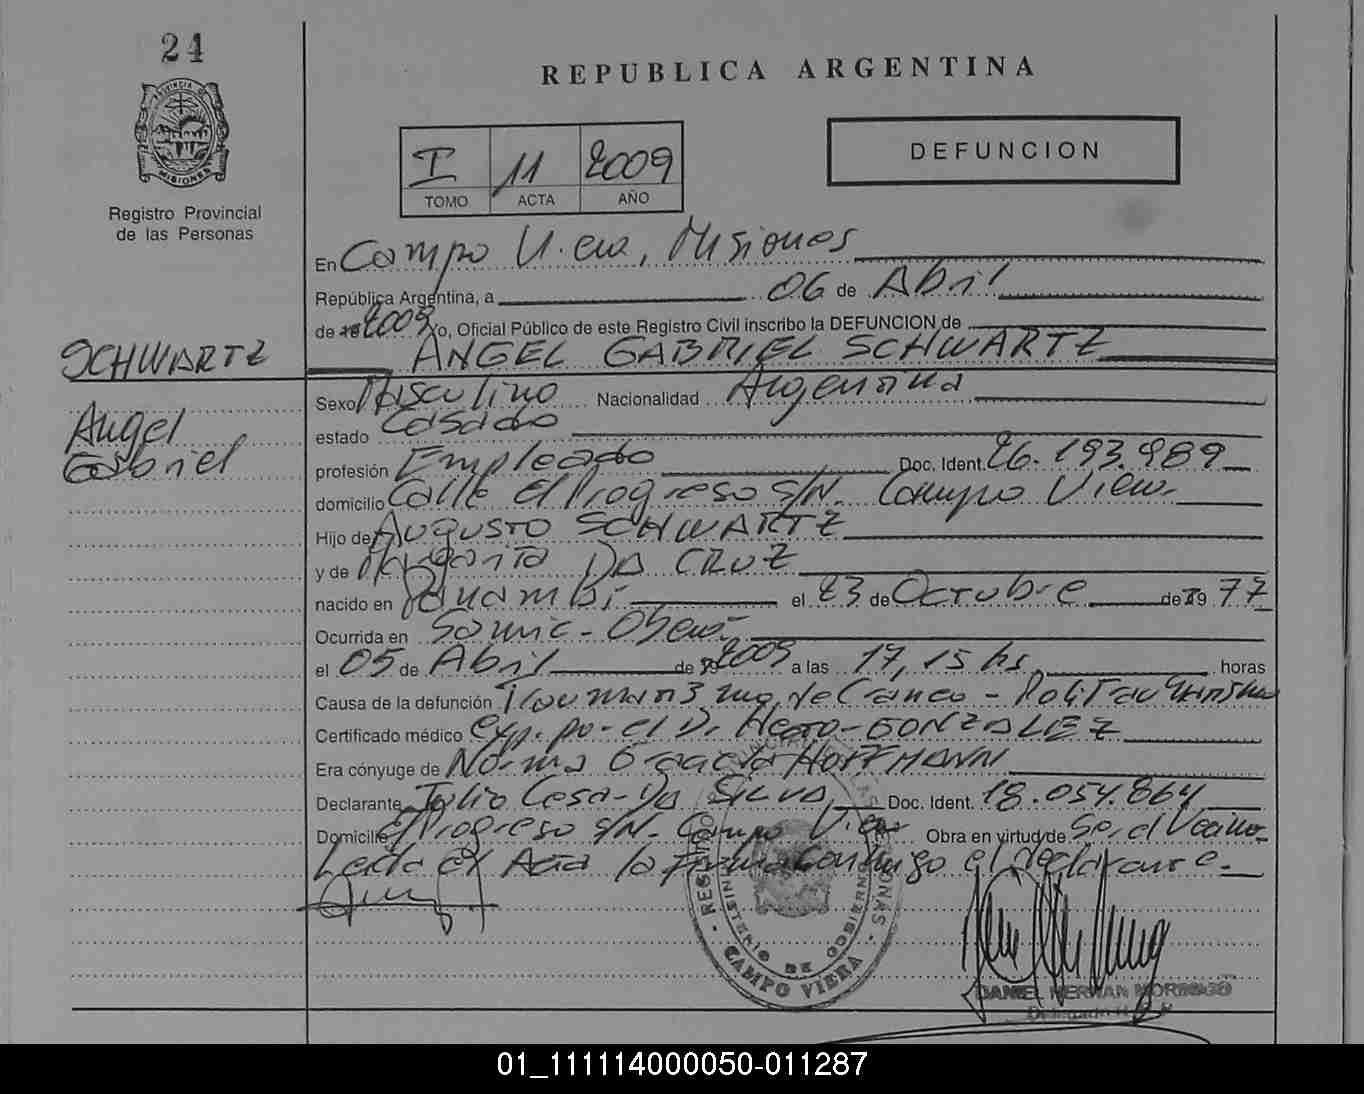 24
PROVINCIA DE
MISIONES
Registro Provincial
de las Personas
REPUBLICA ARGENTINA
I 11 2009
TOMO ACTA AÑO
DEFUNCION
En Campo Viera, Misiones
República Argentina, a 06 de Abril
de 19 2009 Yo, Oficial Público de este Registro Civil inscribo la DEFUNCION de
SCHWARTZ
ANGEL GABRIEL SCHWARTZ
Angel
Gabriel
Sexo Masculino Nacionalidad Argentina
estado Casado
profesión Empleado Doc. Ident. 26.193.989
domicilio Calle El Progreso S/N. Campo Viera
Hijo de AUGUSTO SCHWARTZ
y de Margarita DA CRUZ
nacido en Panambí el 23 de Octubre de 19 77
Ocurrida en Samic - Oberá
el 05 de Abril de 19 2009 a las 17,15 hs. horas
Causa de la defunción de Craneo -
Certificado médico exp. por el Dr. GONZALEZ
Era cónyuge de Norma Graciela HOFFMANN
Declarante Julio Cesar DA SILVA Doc. Ident. 18.054.864
Domicilio El Progreso S/N. Campo Viera Obra en virtud de Ser el Vecino
Leida el Acta la firma conmigo el declarante.
MINISTERIO DE GOBIERNO
CAMPO VIERA
DANIEL HERNAN MORINIGO
01_111114000050-011287